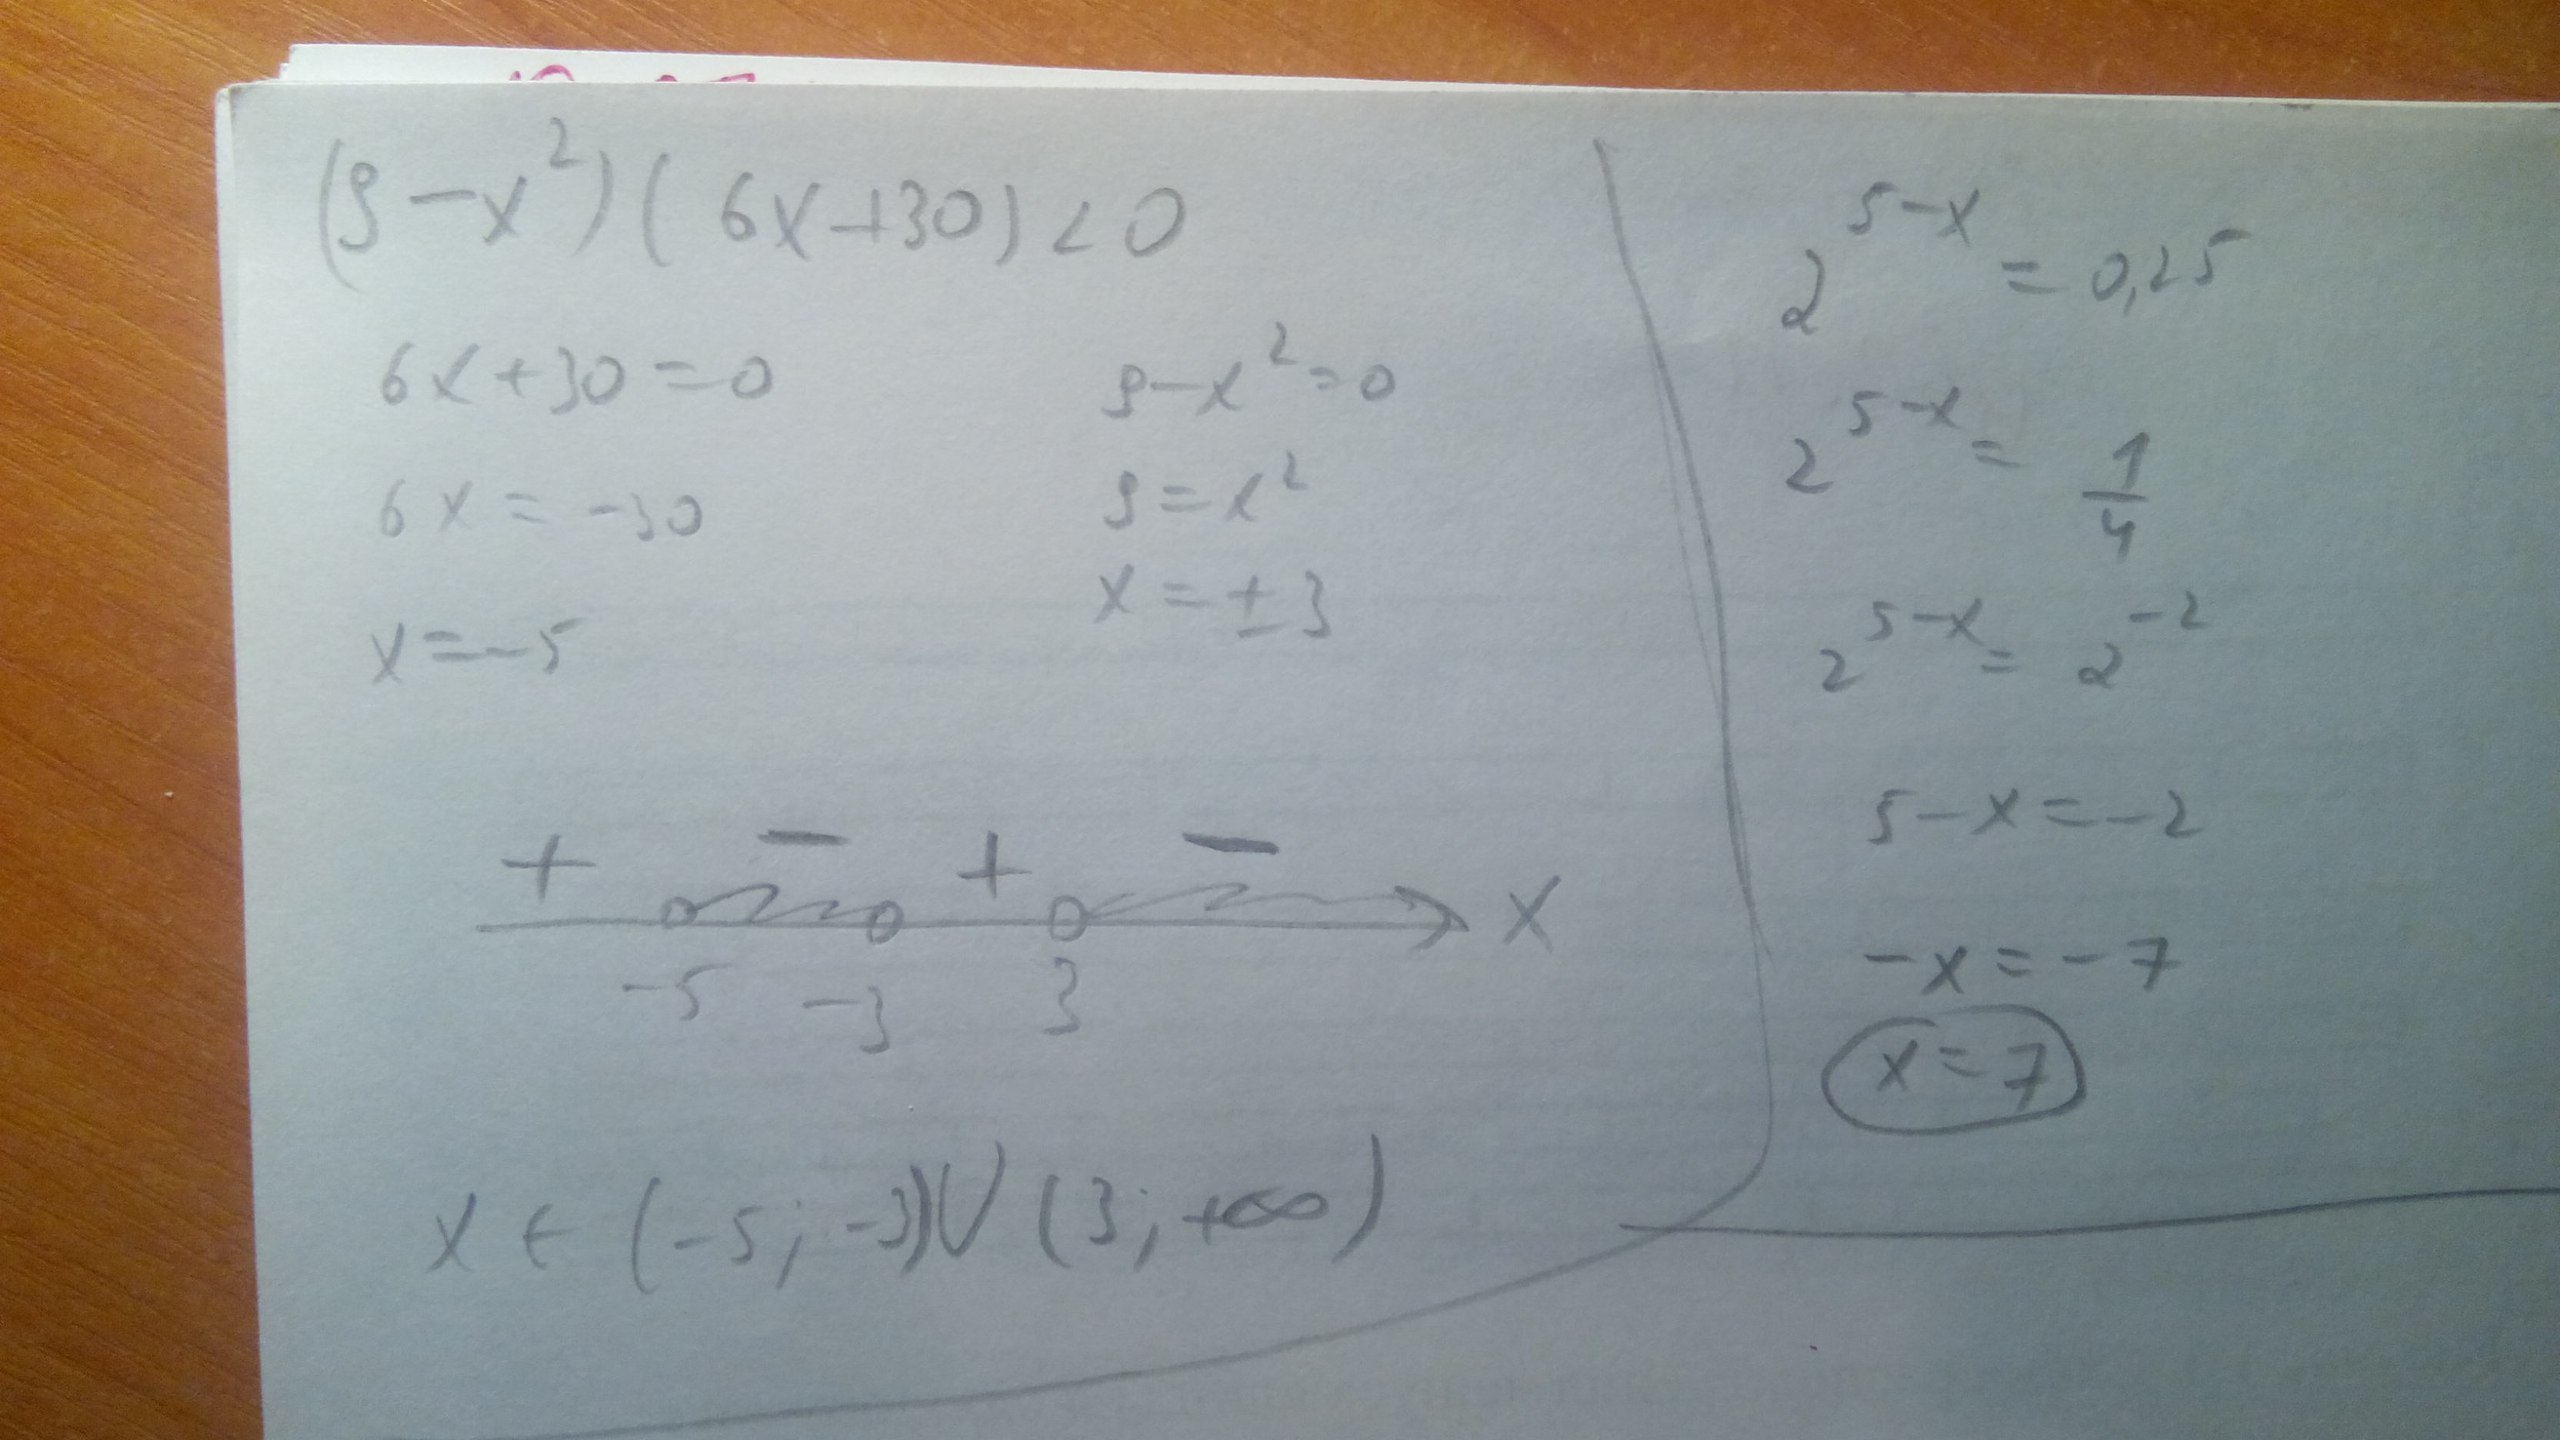 (9-x²)(6x+30)<0
6x+30=0
6x=-30
x=-5
9-x²=0
9=x²
x=±3
+ - + -
-5 -3 3 x
x∈(-5;-3)∪(3;+∞)
2^(5-x)=0,25
2^(5-x)=1/4
2^(5-x)=2^(-2)
5-x=-2
-x=-7
x=7